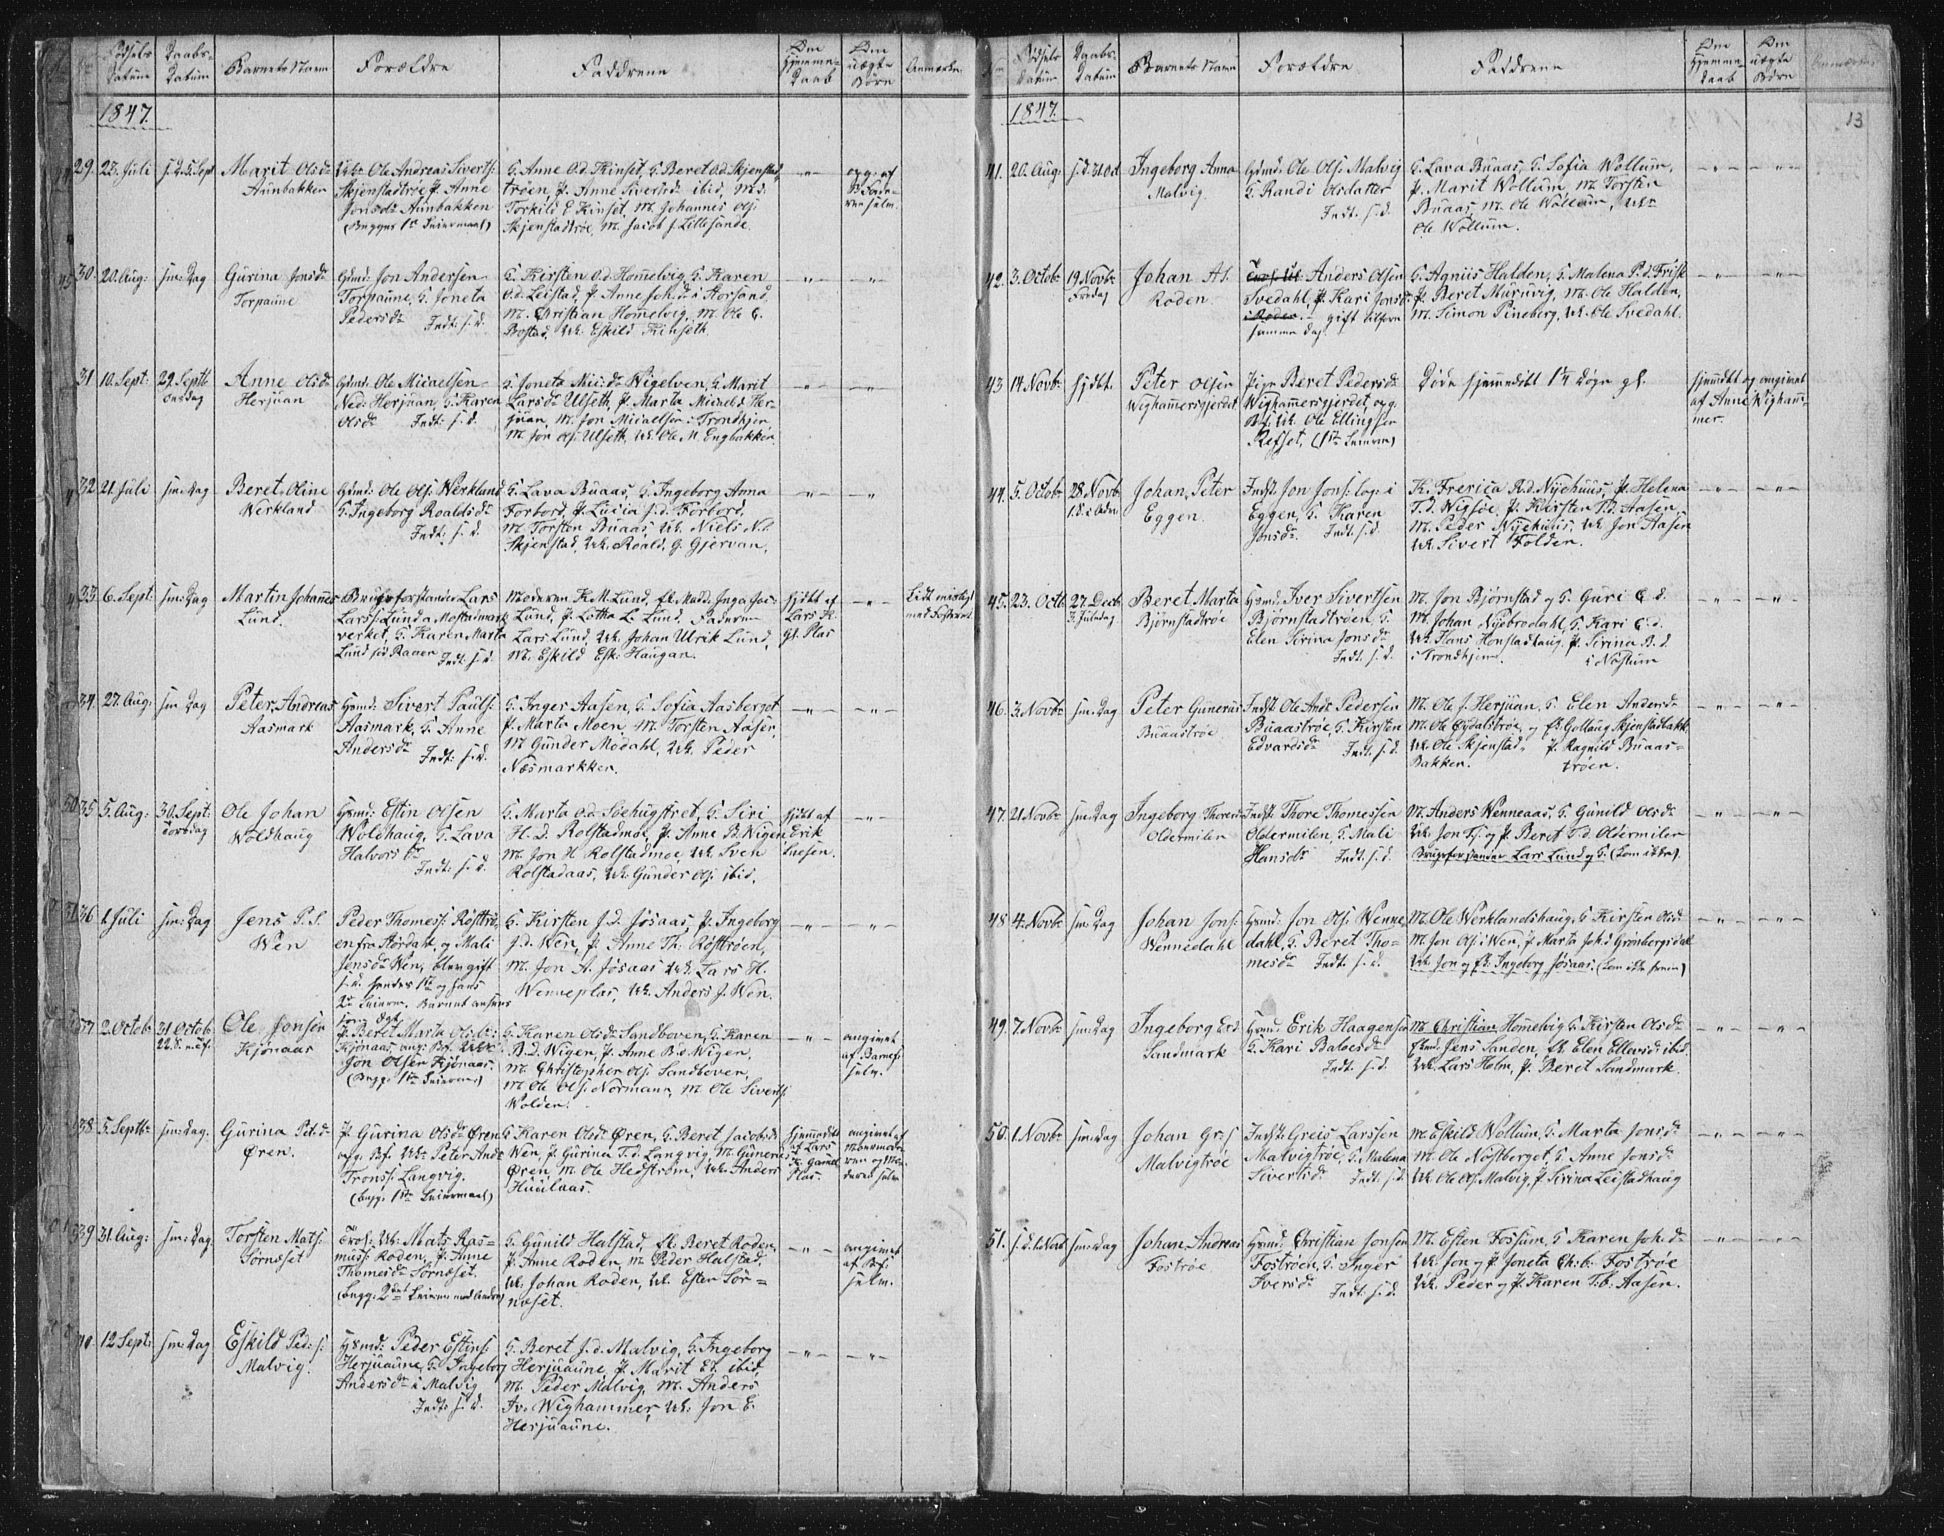 Fødsels Datum
Daabs-Datum
Barnets Navn
Forældre
Faddrene
Om Hjemme-Daab
Om uægte Børn
Anmærkn:
1847.
29. 23. Juli
Marit Olsdr
Aunbakken
Ole Andreas Sivertss:
Skjenstadtrøe, P. Anne
Jonsdr Aunbakken
(Begges 1ste Leiermaal)
G. Anne O.d. Kinset, G. Beret O.d. Skjenstad,
trøen, P. Anne Sivertsdr ibid, M.
Torkild E. Kinset, M. Johannes Ols:
Skjenstadtrøe, M. Jacob J. Lillesande.
30. 20. Aug: sm: Dag
Gurina Jonsdr
Torpaune
Gmd: Jon Andersen
Torpaune, G. Joneta
Pedersdr Indt: s: d.
G. Kirsten O.d. Hommelvig, G. Karen
O.d. Leistad, P. Anne Joh.d. i Storsand,
M. Christian Hommelvig, M. Ole C.
Bostad, Uk. Eskild Kinseth.
31 10. Sept: 29. Septb Onsdag
Anne Olsdr
Herjuan
Gmd: Ole Micaelsen
Ned: Herjuan, G. Karen
Olsdr Indt: s: d.
G. Joneta Mic:dr Wigelven, G. Marit
Larsdr Ulseth, P. Marta Micaelsd. Her-
juan, M. Jon Micaelsen i Trondhjem
M. Jon Ols: Ulseth, Uk. Ole M. Engbakken.
32 21. Juli sm: Dag
Beret Oline
Werkland
Gmd: Ole Ols: Werkland
G. Ingeborg Roaldsdr
Indt: s: d.
G. Lava Buaas, G. Ingeborg Anna
Forbord, P. Lucia J. d. Forbord,
M. Torsten Buaas, Uk. Niels N.
Skjenstad, Uk. Roald G. Gjervan.
33 6. Sept: sm: Dag
Martin Johannes
Lund.
Brugsforstander Lars
Larss: Lund a Mostadmark
verket, G. Karen Marta
Lund fød Raaen Indt: s: d.
Moderen K. M. Lund, Mad. Inga Jac:
Lund, P. Lotha L. Lund. Faderen
Lars Lund, Uk. Johan Ulrik Lund,
M. Eskild Esk: Haugan.
hjdbt af
Lars K.
Gl. Plas
34. 27. Aug: sm Dag
Peter Andreas
Aasmark
Gmd: Sivert Pauls:
Aasmark, G. Anne
Andersdr Indt: s: d.
G. Inger Aasen, G. Sofia Aasberget
P. Marta Moen, M. Torsten Aasen,
M. Gunder Modahl, Uk. Peder
Næsmarkken.
35 5. Aug: 30. Sept. Torsdag
Ole Johan
Woldhaug
Gmd: Estin Olsen
Woldhaug, G. Lava
Halvorsdr
Indt: s. d.
G. Marta O.d. G. Siri
H. d. Rolstadmoe, P. Anne B. Wigen
M. Jon H. Rolstadmoe, Uk. Sven
Rolstadaas, Uk. Gunder Ols: ibid.
hjdbt af
Erik
36 1. Juli sm: Dag
Jens P. S.
Wen
Peder Thomess: Røsttrø,
en fra Størdahl, og Mali
Jensdr Wen, blev gift
s: d. hendes 1ste og hans
2d Leierm. Barnet ansees
som ægte
G. Kirsten J. d. Jøsaas, P. Ingeborg
J. d. Wen, P. Anne Th: Røsttrøen,
M. Jon A. Jøsaas, Uk. Lars H.
Wenneplas, Uk. Anders J. Wen.
37 2. Octob: 31. Octob: 22. S. e. Trf.
Ole Jonsen
Kjønaas
P. Beret Marta Olsdr:
Kjønaas, ang: Bf. Uk
Jon Olsen Kjønaas.
(Begg: 1ste Leierm.)
G. Karen Olsdr Sandboven, G. Karen
B. d. Wigen, P. Anne B. d. Wigen,
M. Christopher Ols: Sandboven,
M. Ole Ols: Normann, M. Ole Siverts:
Wolden.
angivet
af Barnef:
selv.
38. 5. Septb: sm: Dag.
Gurina Pet.dr
Øren.
P. Gurina Olsdr Øren
opg. Bf. Uk. Peter Andr
Tronss: Langvig.
(begg: 1ste Leiermaal)
G. Karen Olsdr Øren, G. Beret Jacobsdr
Wen, P. Gurina T. d. Langvig, M. Gunerus
Øren, M. Ole Hedstrøm, Uk. Anders
Huulaas.
Hjemmedøbt
af Lars
K. Gamel
Plas.
39 31. Aug: sm: Dag.
Torsten Mats:
Sørnæset
Uk: Mats Ras-
muss: Roden, P. Anne
Thomesdr Sørnæset.
(begg: 2det Leierm. med andre)
G. Gunild Halstad, Beret Roden,
P. Anne Roden, M. Peder Halstad,
Uk: Johan Roden, Uk. Esten Sør-
næset.
angivet
af Bf.
selv.
40. 12 Sept: sm: Dag
Eskild Ped: s:
Malvig.
Gmd: Peder Estins:
Herjuaune, G. Ingeborg
Andersdr i Malvig
Indt: s: d.
G. Beret J. d. Malvig, G. Ingeborg
Herjuaune, P. Marit Ed. ibid,
M. Peder Malvig, M. Anders
Iv: Wighammer, Uk: Jon E.
Herjuaune.
No Fødsels Datum
Daabs-Datum
Barnets Navn
Forældre
Faddrene
Om Hjemme-daab
Om uægte Børn
Anmærkn:
1847.
13
41. 20. Aug:
Ingeborg Anna
Malvig.
Gmd: Ole Ols: Malvig
G. Randi Olsdatter
Indt. s. d.
G. Lava Buaas, G. Sofia Wollum,
P. Marit Wollum, M. Torsten
Buaas, M. Ole Wollum, Uk
Ole Wollum.
42. 3. Octob: 19. Novb: Fredag
Johan A.
Roden.
Anders Olsen
Svedahl, P. Kari Jonsdr
i Roden. gift tilforn
samme dag.
G. Agniis Halden, G. Malena P. d. Friss
P. Beret Muruvig, M. Ole Halden,
M. Simon Pineberg, Uk. Ole Svedahl.
43. 14. Novb: hjdbt.
Peter Olsen
Wighammersgjerdet
Pige Beret Pedersdr
Wighammersgjerdet, opg.
Bf. Uk. Ole Ellingsen
Refset, (1ste Leierm.)
Døde hjemmedøbt 1 1/4 Døgn gl.
hjemdbt
af Anne Wigham-
mer.
og angivet
44. 5. Octob: 28. Novb: 1. S. i Adv.
Johan Peter
Eggen.
Indst. Jon Jons: log: i
Eggen, G. Karen
Jonsdr Indt. s. d.
K. Frerica R. d. Nyehuus, P. Helena
T. d. Wigsøe, P. Kirsten T. d. Aasen,
M. Peder Nyehuus, Uk. Jon Aasen
Uk. Sivert Folden.
45. 23. Octb: 27. Decb: 3. Juledag
Beret Marta
Bjørnstadtrøe
Gmd: Iver Sivertsen
Bjørnstadtrøen, G.
Elen Sirina Jonsdr
Indt. s. d.
M. Jon Bjørnstad og G. Guri E. d.
M. Johan Nyebrodahl, G. Kari E. d.
Uk. Hans Honstadhaug, P. Sirina B. d.
i Trondhjem. i Nøstum
46. 3. Novb: sm: Dag
Peter Gunerus
Buaastrøe
Indst Ole Andr Pedersen
Buaastrøe, G. Kirsten
Edvardsdr Indt. s. d.
M. Ole J. Herjuan, G. Elen Andersdr
M. Ole Øydalstrøe, og Gollaug Skjenstadbakk
Uk. Ole Skjenstad, P. Ragnild Buaas-
Bakken. trøen.
47. 21 Novb: sm: Dag
Ingeborg Thoresdr
Oldermilen
Indst. Thore Thomessen
Oldermilen, G. Mali
Hansdr Indt. s. d.
M. Anders Wenneaas, G. Gunild Olsdr
Uk. Jon T: og P. Beret T. d. Oldermilen
Brugsforstander Lars Lund og G. (Som ikke).
48 4. Novb: sm: Dag
Johan Jons:
Wennedahl
Gmd: Jon Ols: Wenne
dahl, G. Beret Tho-
mesdr Indt: s. d.
M. Ole Werklandshaug, G. Kirsten Olsd
M. Jon Ols: i Wen, P. Marta Joh.d. Grønbergsdal
Uk. Jon og Ingeborg Jøsaas. (Som ikke)
49. 7. Novb: sm: Dag
Ingeborg E.d
Sandmark
Gmd: Erik Haagensen
G. Kari Baloesdr
Indt. s. d.
M. Christian Hommelvig, G. Kirsten Olsdr
Jens Sanden, Elen Ellevsdr ibid
Uk. Lars Holm, P. Beret Sandmark.
50. 1. Novb: sm: Dag
Johan Gr: s
Malvigtrøe
Indst: Greis Larssen
Malvigtrøe, G. Malena
Sivertsdr Indt. s. d.
M. Eskild Wollum, G. Marta Jonsdr
M. Ole Nøstberget, G. Anne Jonsdr
Uk. Ole Ols: Malvig, P. Sirina Leistadhaug
51. s. d. 1 Novb: sm: Dag
Johan Andreas
Fostrøe
Gmd: Christian Jonsen
Fostrøen, G. Inger
Iversdr
Indt. s. d.
M. Esten Fossum, G. Karen Joh.dr
Uk. Jon og P. Joneta Ch: b: Fostrøe
Uk. Peder og P. Karen T: b: Aasen.